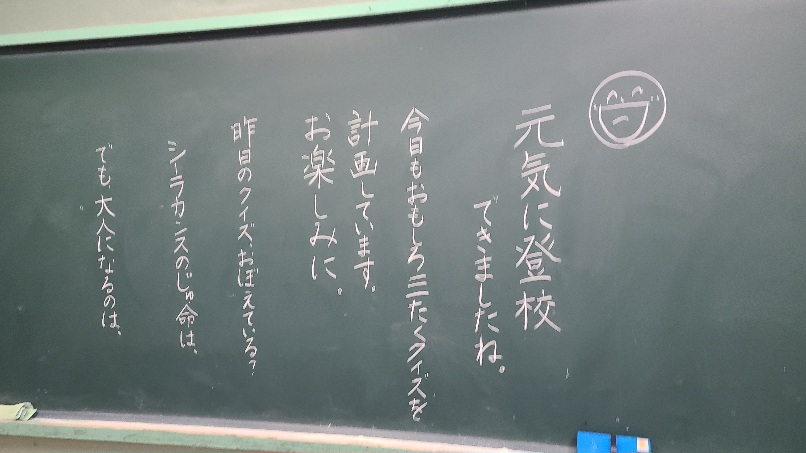 元気に登校
できましたね。
今日もおもしろ三たくクイズを
計画しています。
お楽しみに。
昨日のクイズ、おぼえている?
シーラカンスのじゅ命は、
でも大人になるのは、